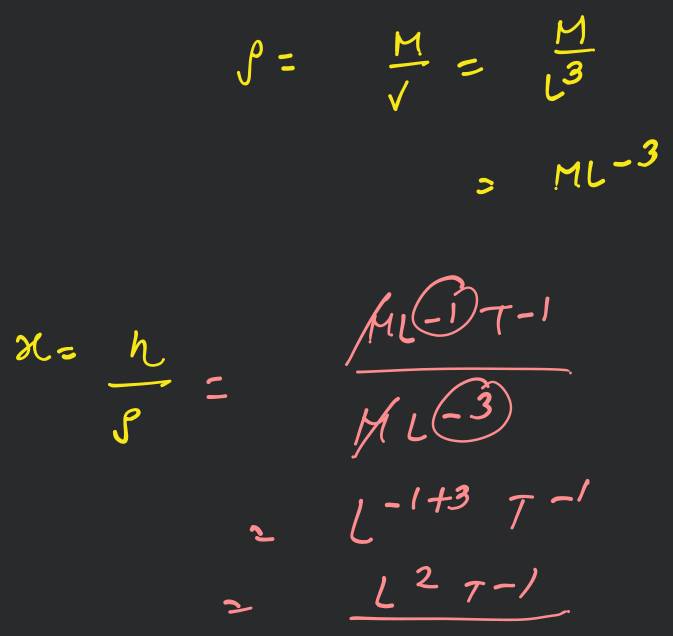 ρ = M/V = M/L³
= ML⁻³
x = η/ρ = ML⁻¹T⁻¹/ML⁻³
= L⁻¹⁺³ T⁻¹
= L² T⁻¹